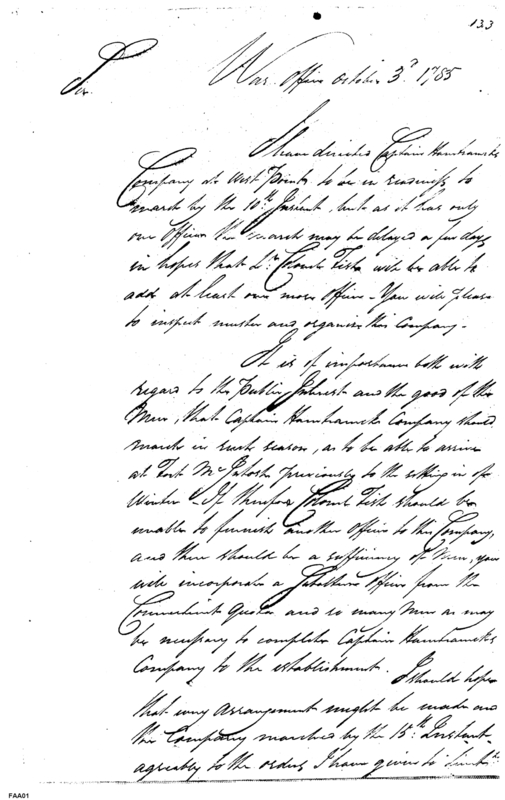 133
War Office October 3d. 1785
Sir.
I have directed Captain Hamtramcks
Company at West Point to be in readiness to
march by the 10th Instant, but as it has only
one Officer the march may be delayed a few days
in hopes that Lt. Colonel Fish will be able to
add at least one more officer - You will please
to inspect muster and organise this Company -
It is of importance both with
regard to the Public Interest and the good of the
Men, that Captain Hamtramcks Company should
march in such season, as to be able to arrive
at Fort McIntosh previously to the setting in of
Winter - If therefore Colonel Fish should be
unable to furnish another Officer to this Company,
and there should be a sufficiency of Men, you
will incorporate a Subaltern Officer from the
Connecticut Quota and so many Men as may
be necessary to complete Captain Hamtramcks
Company to the establishment. I should hope
that every arrangement might be made and
the Company marched by the 15th. Instant
agreeably to the orders I have given to Lieut.
FAA01